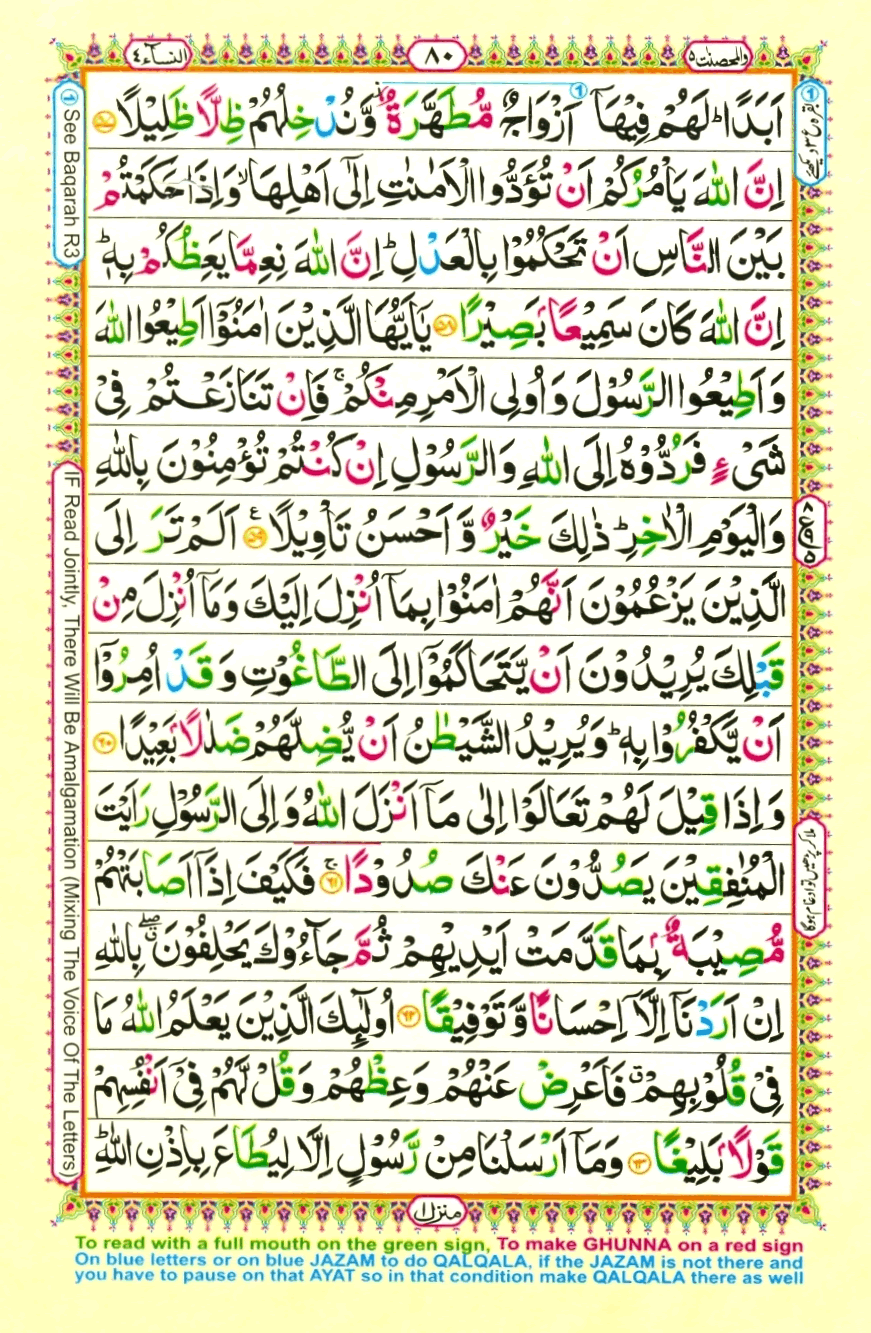 النساء ٤
٨٠
والمحصنت ٥
اَبَدًا ؕ لَهُمْ فِيْهَاۤ اَزْوَاجٌ مُّطَهَّرَةٌ ۙ وَّنُدْخِلُهُمْ ظِلًّا ظَلِيْلًا ۝۵۷
اِنَّ اللّٰهَ يَاْمُرُكُمْ اَنْ تُؤَدُّوا الْاَمٰنٰتِ اِلٰۤى اَهْلِهَا ۙ وَاِذَا حَكَمْتُمْ
بَيْنَ النَّاسِ اَنْ تَحْكُمُوْا بِالْعَدْلِ ؕ اِنَّ اللّٰهَ نِعِمَّا يَعِظُكُمْ بِهٖ ؕ
اِنَّ اللّٰهَ كَانَ سَمِيْعًۢا بَصِيْرًا ۝۵۸ يٰۤاَيُّهَا الَّذِيْنَ اٰمَنُوْۤا اَطِيْعُوا اللّٰهَ
وَاَطِيْعُوا الرَّسُوْلَ وَاُولِى الْاَمْرِ مِنْكُمْ ۚ فَاِنْ تَنَازَعْتُمْ فِىْ
شَىْءٍ فَرُدُّوْهُ اِلَى اللّٰهِ وَالرَّسُوْلِ اِنْ كُنْتُمْ تُؤْمِنُوْنَ بِاللّٰهِ
وَالْيَوْمِ الْاٰخِرِ ؕ ذٰلِكَ خَيْرٌ وَّاَحْسَنُ تَاْوِيْلًا ۝۵۹ ع اَلَمْ تَرَ اِلَى
الَّذِيْنَ يَزْعُمُوْنَ اَنَّهُمْ اٰمَنُوْا بِمَاۤ اُنْزِلَ اِلَيْكَ وَمَاۤ اُنْزِلَ مِنْ
قَبْلِكَ يُرِيْدُوْنَ اَنْ يَّتَحَاكَمُوْۤا اِلَى الطَّاغُوْتِ وَقَدْ اُمِرُوْۤا
اَنْ يَّكْفُرُوْا بِهٖ ؕ وَيُرِيْدُ الشَّيْطٰنُ اَنْ يُّضِلَّهُمْ ضَلٰلًۢا بَعِيْدًا ۝۶۰
وَاِذَا قِيْلَ لَهُمْ تَعَالَوْا اِلٰى مَاۤ اَنْزَلَ اللّٰهُ وَاِلَى الرَّسُوْلِ رَاَيْتَ
الْمُنٰفِقِيْنَ يَصُدُّوْنَ عَنْكَ صُدُوْدًا ۝۶۱ ۚ فَكَيْفَ اِذَاۤ اَصَابَتْهُمْ
مُّصِيْبَةٌۢ بِمَا قَدَّمَتْ اَيْدِيْهِمْ ثُمَّ جَآءُوْكَ يَحْلِفُوْنَ ۖ بِاللّٰهِ
اِنْ اَرَدْنَاۤ اِلَّاۤ اِحْسَانًا وَّتَوْفِيْقًا ۝۶۲ اُولٰٓئِكَ الَّذِيْنَ يَعْلَمُ اللّٰهُ مَا
فِىْ قُلُوْبِهِمْ ۗ فَاَعْرِضْ عَنْهُمْ وَعِظْهُمْ وَقُلْ لَّهُمْ فِىْۤ اَنْفُسِهِمْ
قَوْلًۢا بَلِيْغًا ۝۶۳ وَمَاۤ اَرْسَلْنَا مِنْ رَّسُوْلٍ اِلَّا لِيُطَاعَ بِاِذْنِ اللّٰهِ ؕ
منزل ١
① See Baqarah R3
IF Read Jointly, There Will Be Amalgamation (Mixing The Voice Of The Letters)
ملا کر پڑھیں تو ادغام ہوگا
To read with a full mouth on the green sign, To make GHUNNA on a red sign
On blue letters or on blue JAZAM to do QALQALA, if the JAZAM is not there and
you have to pause on that AYAT so in that condition make QALQALA there as well